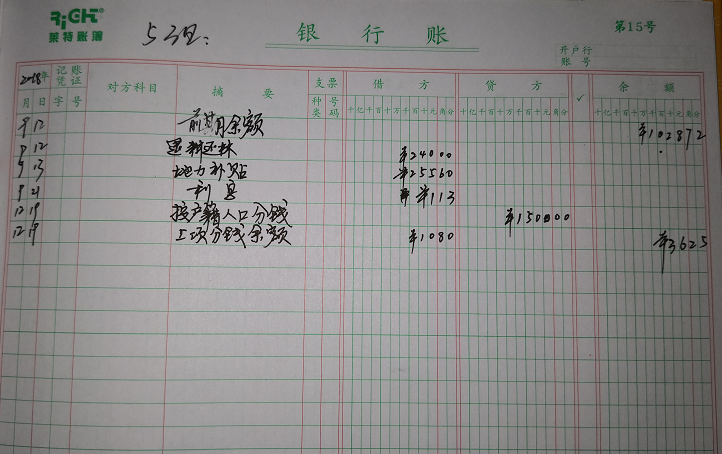 RiGHT®
莱特账簿
5组:
银 行 账
第15号
开户行
账 号
2018年 记账凭证 对方科目 摘 要 支票 借 方 贷 方 ✓ 余 额
月 日 字 号 种类 号码 十亿千百十万千百十元角分 十亿千百十万千百十元角分 十亿千百十万千百十元角分
9 12 前期余额 ¥102872
9 12 退耕还林 ¥24000
9 13 地力补贴 ¥25560
9 21 利息 ¥113
12 19 按户籍人口分钱 ¥150000
12 19 上项分钱余额 ¥1080 ¥3625